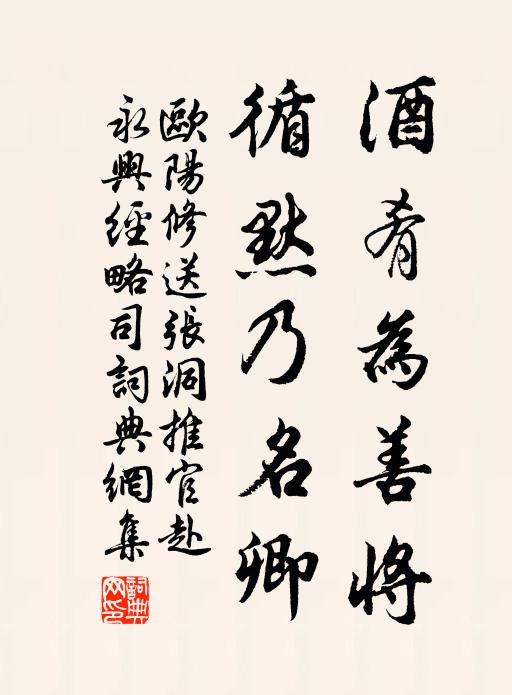 酒肴為善將
循默乃名卿
歐陽修送張洞推官赴
永興經略司詞典網集
詞典
网印